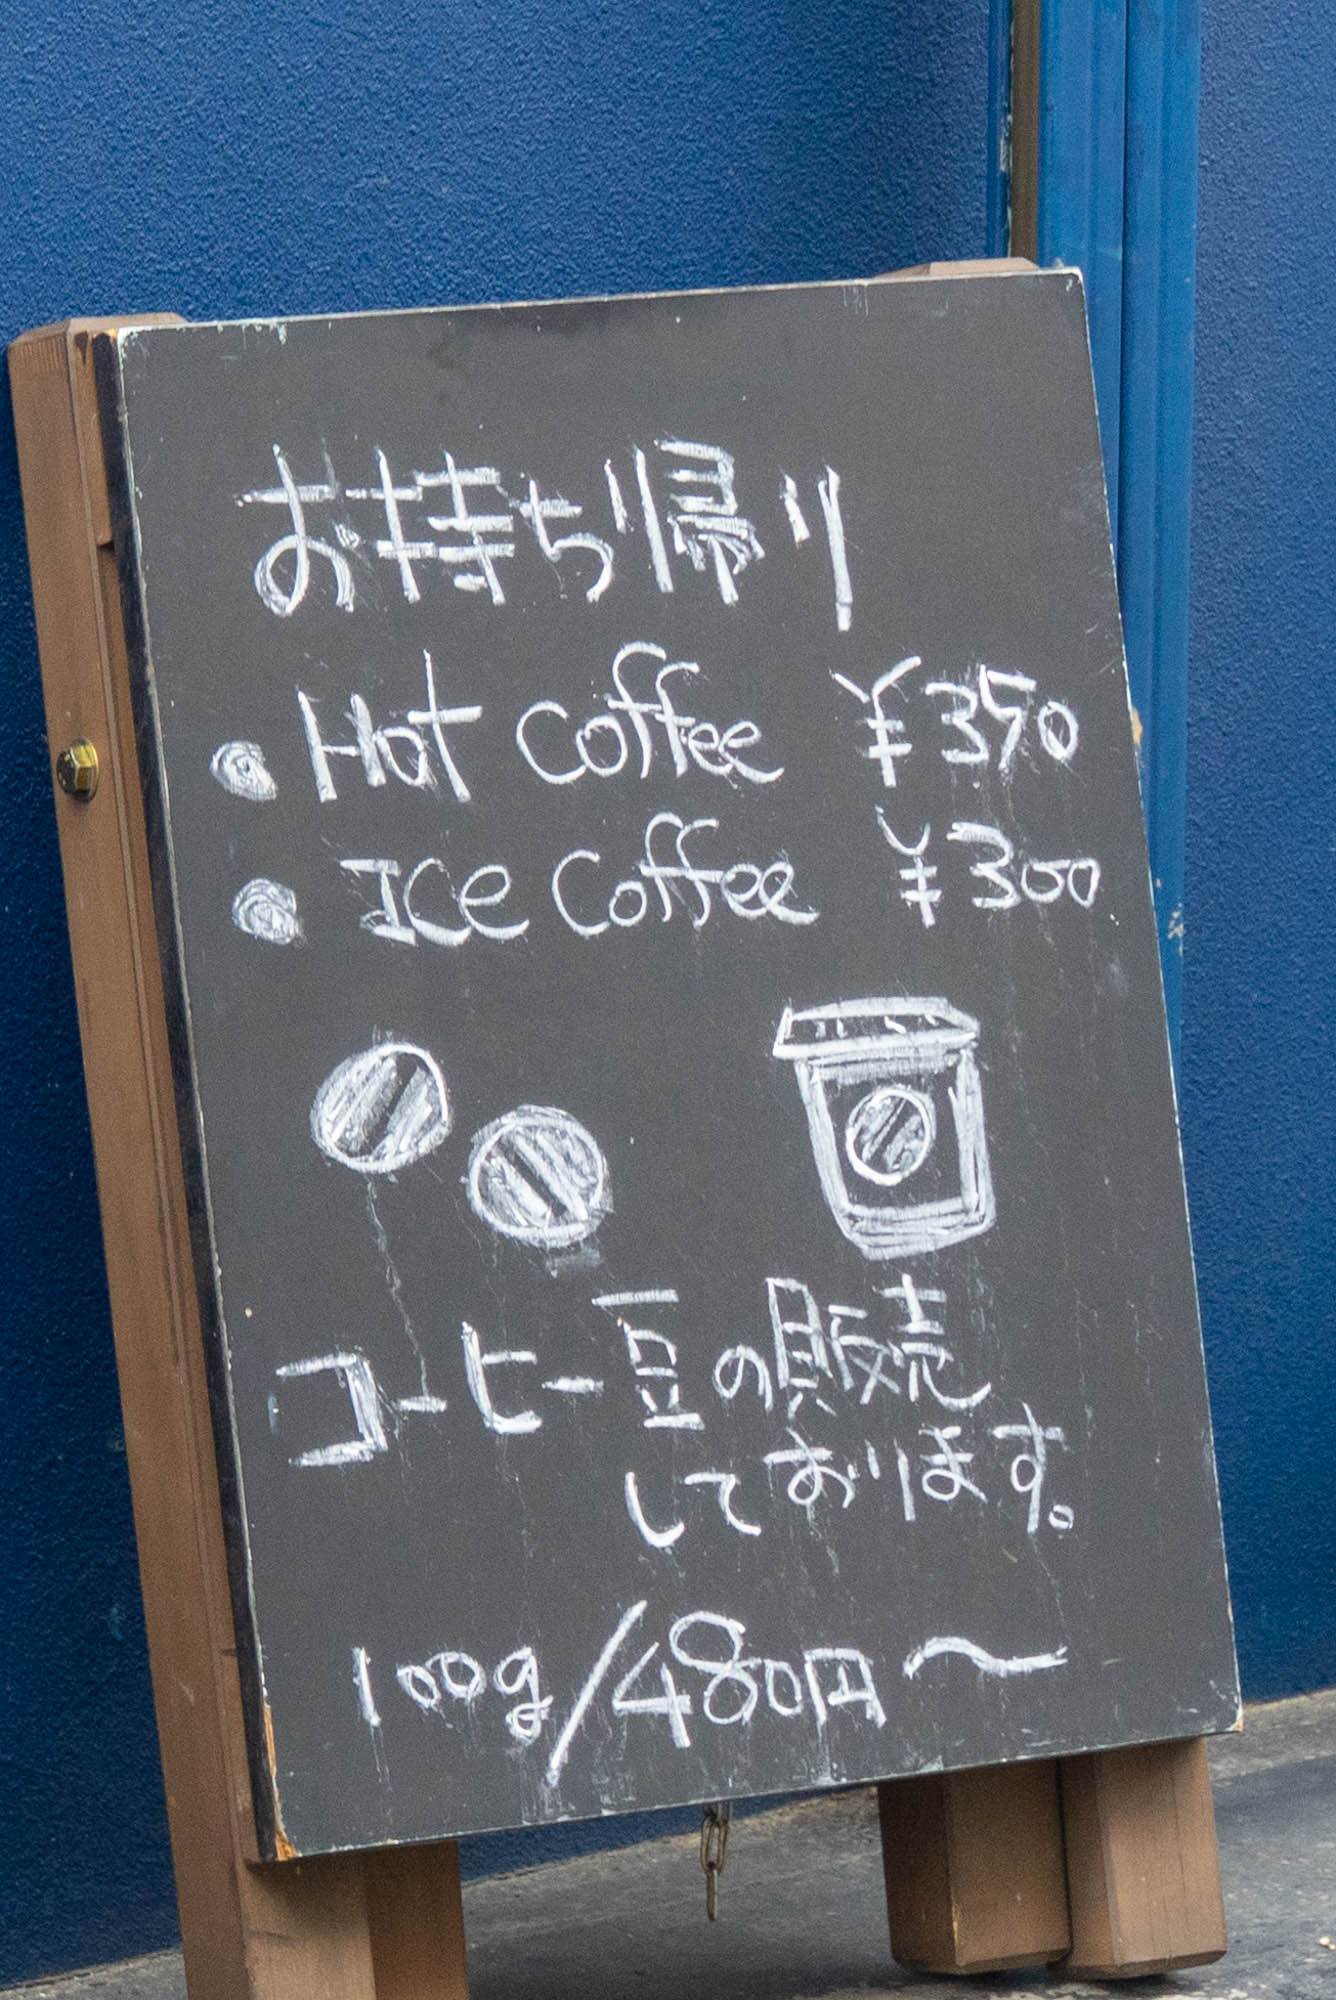 お持ち帰り
• Hot coffee ¥370
• Ice Coffee ¥300
コーヒー豆の販売
しております。
100g/480円〜